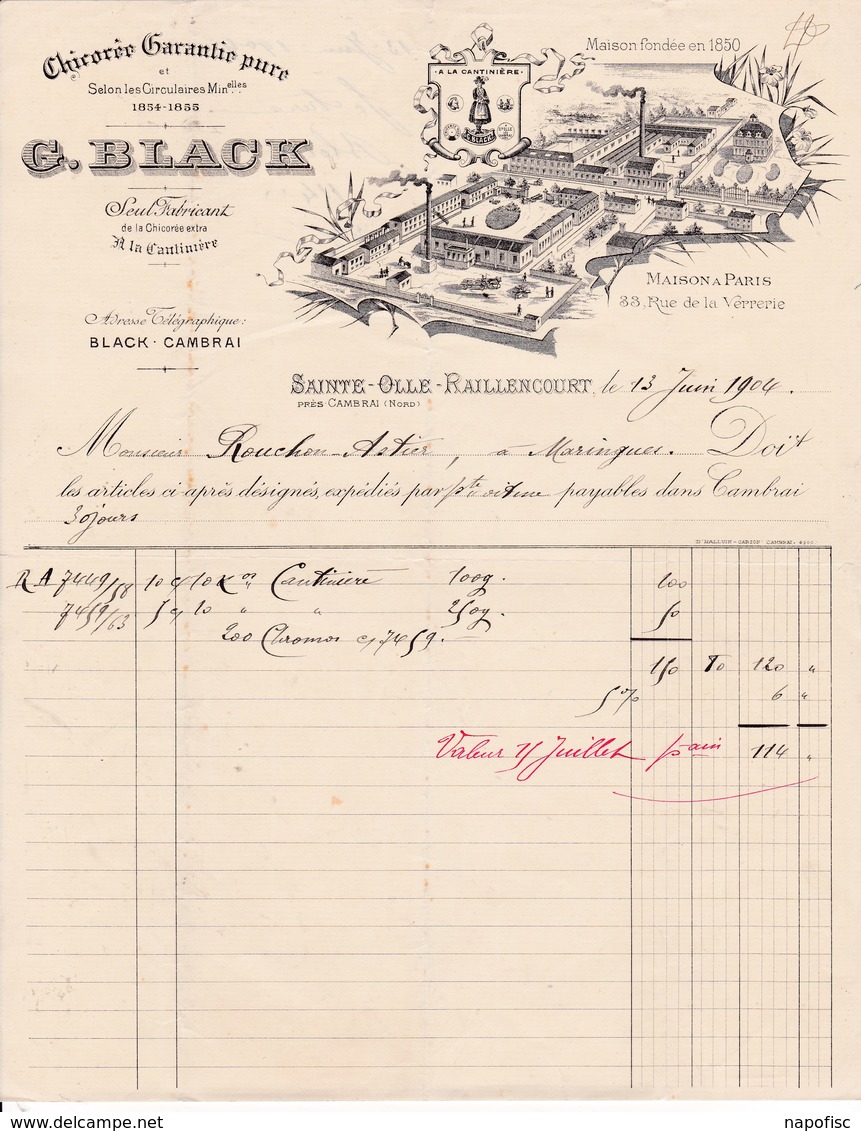 Chicorée Garantie pure
et
Selon les Circulaires Min.elles
1854-1855
G. BLACK
Seul Fabricant
de la Chicorée extra
A la Cantinière
Adresse Télégraphique:
BLACK · CAMBRAI
A LA CANTINIÈRE
G. BLACK
Maison fondée en 1850
MAISON A PARIS
33, Rue de la Verrerie
SAINTE-OLLE-RAILLENCOURT, le 13 Juin 1904.
PRÈS CAMBRAI (NORD)
Monsieur Rouchon-Astier, à Maringues. Doit
les articles ci après désignés, expédiés par pte vitesse payables dans Cambrai
30 jours
D'HALLUIN-CARION CAMBRAI
R A 7449/58 10 c/ 10 Kos Cantinière 100g. 100
7459/63 5 c/ 10 " " 250g. 50
200 Chromos c/ 7459.
150 To 120 "
5% 6 "
Valeur 15 Juillet pain 114 "
napofisc